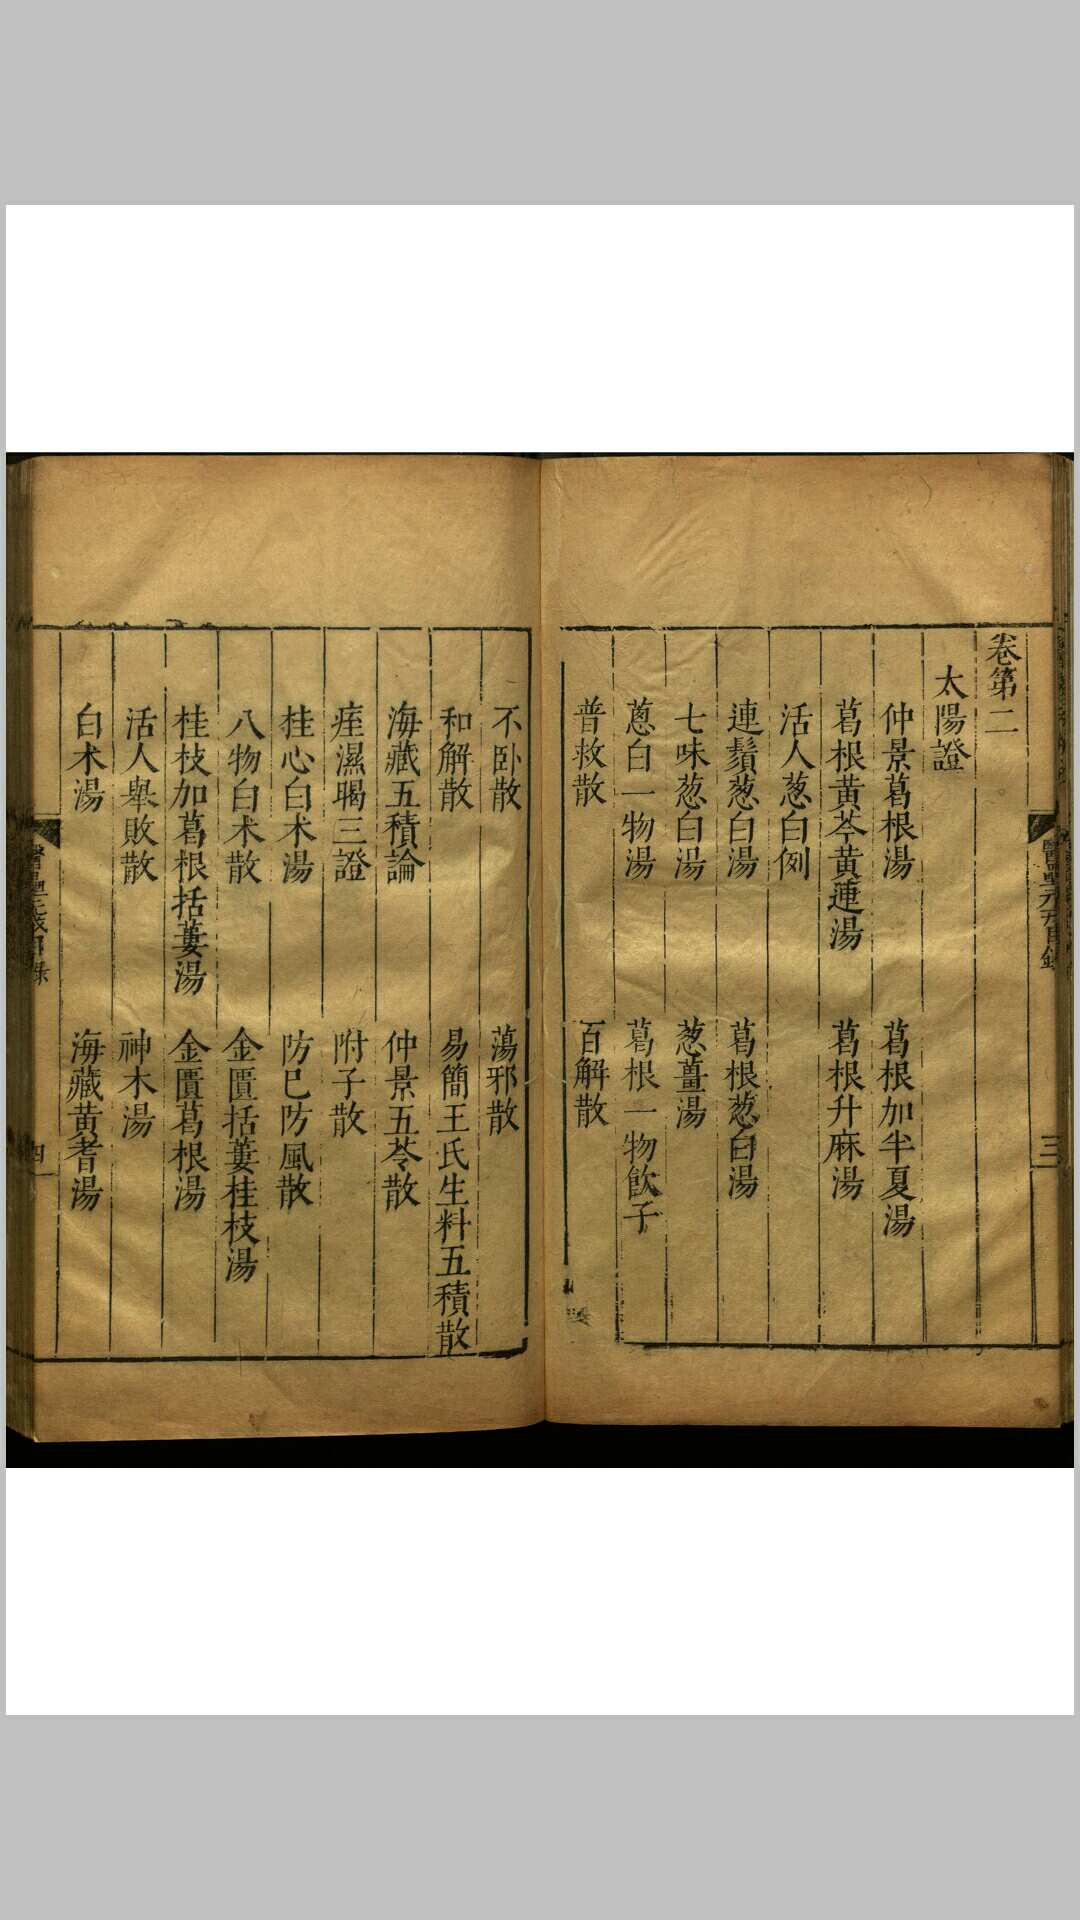 卷第二
太陽證
仲景葛根湯 葛根加半夏湯
葛根黄芩黄連湯 葛根升麻湯
活人葱白例
連鬚葱白湯 葛根葱白湯
七味葱白湯 葱薑湯
蔥白一物湯 葛根一物飲子
普救散 百解散
不卧散 蕩邪散
和解散 易簡王氏生料五積散
海藏五積論 仲景五苓散
痓濕暍三證 附子散
桂心白术湯 防巳防風散
八物白术散 金匱括蔞桂枝湯
桂枝加葛根括蔞湯 金匱葛根湯
活人舉敗散 神木湯
白术湯 海藏黄耆湯
三
四